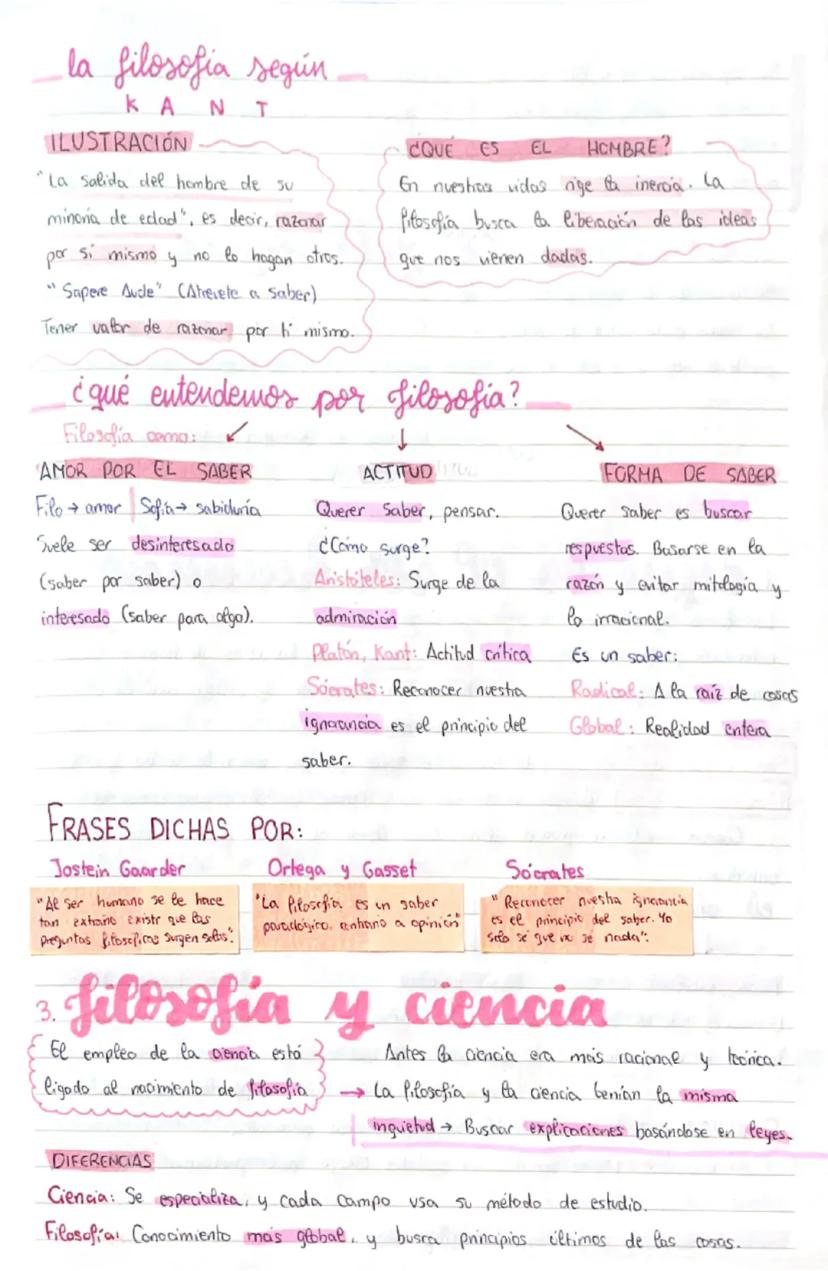 la filosofía según
KANT
ILUSTRACIÓN
"La salida del hombre de su
minoría de edad", es decir, razonar
por sí mismo y no lo hagan otros.
"Sapere Aude" (Atrévete a saber)
Tener valor de razonar por ti mismo.
¿QUÉ ES EL HOMBRE?
En nuestras vidas rige la inercia. La
filosofía busca la liberación de las ideas
que nos vienen dadas.
¿qué entendemos por filosofía?
Filosofía como:
AMOR POR EL SABER
Filo → amor | Sofía → sabiduría
Suele ser desinteresado
(saber por saber) o
interesado (saber para algo).
ACTITUD
Querer saber, pensar.
¿Cómo surge?
Aristóteles: Surge de la
admiración
Platón, Kant: Actitud crítica
Sócrates: Reconocer nuestra
ignorancia es el principio del
saber.
FORMA DE SABER
Querer saber es buscar
respuestas. Basarse en la
razón y evitar mitología y
lo irracional.
Es un saber:
Radical: A la raíz de cosas
Global: Realidad entera
FRASES DICHAS POR:
Jostein Gaarder
"Al ser humano se le hace
tan extraño existir que las
preguntas filosóficas surgen solas".
Ortega y Gasset
"La filosofía es un saber
paradógico, contrario a opinión"
Sócrates
"Reconocer nuestra ignorancia
es el principio del saber. Yo
solo sé que no sé nada".
3. filosofía y ciencia
El empleo de la ciencia está
ligado al nacimiento de filosofía
Antes la ciencia era más racional y teórica.
→ La filosofía y la ciencia tenían la misma
inquietud → Buscar explicaciones basándose en leyes.
DIFERENCIAS
Ciencia: Se especializa, y cada campo usa su método de estudio.
Filosofía: Conocimiento más global, y busca principios últimos de las cosas.